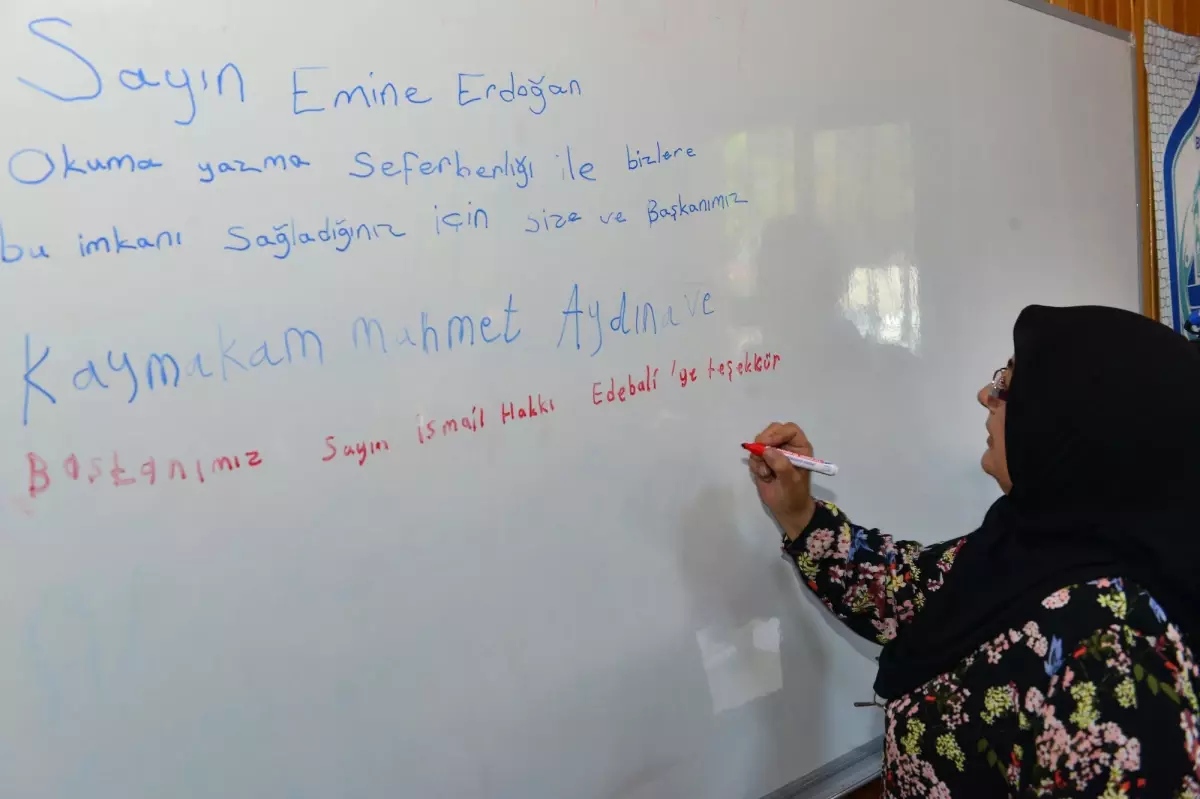 Sayın Emine Erdoğan
Okuma yazma Seferberlığı ile bizlere
bu imkanı Sağladığınız için size ve Başkanımız
Kaymakam Mahmet Aydına ve
Başkanımız Sayın ismail Hakkı Edebali'ye teşekkür